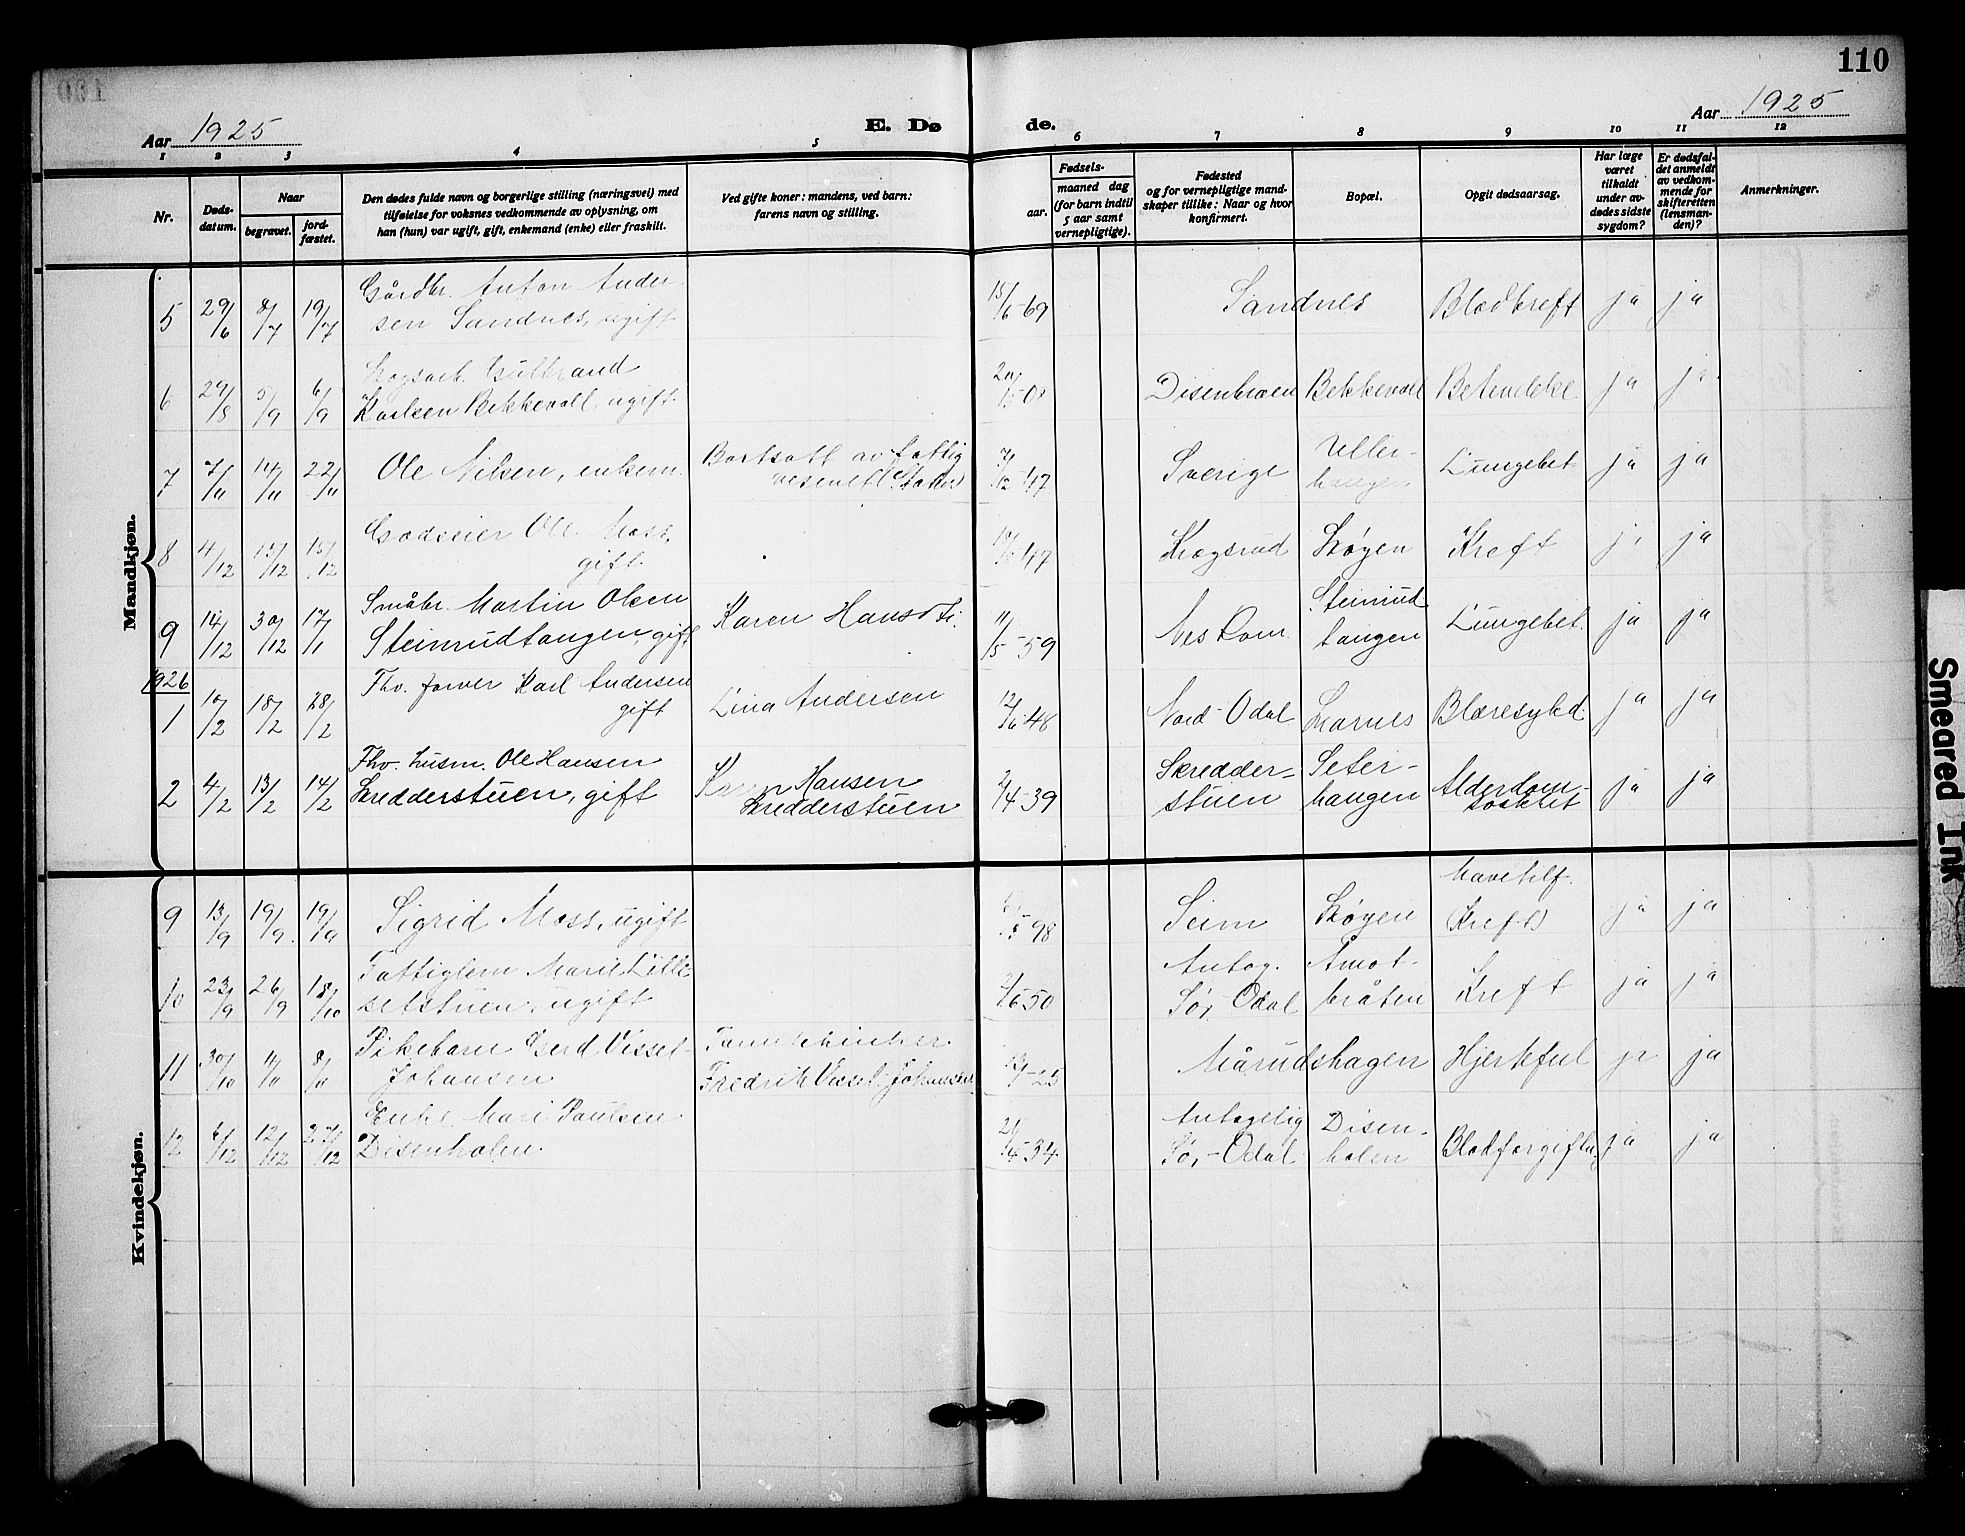 110
Aar 1925
E. Døde.
Aar 1925
1 2 3 4 5 6 7 8 9 10 11 12
Nr.
Døds-datum.
Naar
begravet.
jord-fæstet.
Den dødes fulde navn og borgerlige stilling (næringsvei) med
tilføielse for voksnes vedkommende av oplysning, om
han (hun) var ugift, gift, enkemand (enke) eller fraskilt.
Ved gifte koner: mandens, ved barn:
farens navn og stilling.
Fødsels-
aar.
maaned dag
(for barn indtil
5 aar samt
vernepligtige).
Fødested
og for vernepligtige mand-
skaper tillike: Naar og hvor
konfirmert.
Bopæl.
Opgit dødsaarsag.
Har læge
været
tilkaldt
under av-
dødes sidste
sygdom?
Er dødsfal-
det anmeldt
av vedkom-
mende for
skifteretten
(lensman-
den)?
Anmerkninger.
Mandkjøn.
5 29/6 8/7 19/7 Gårdbr. Anton Ander-
sen Sandnes, ugift 15/6-69 Sandnes Blodkreft ja ja
6 29/8 5/9 6/9 Skogsarb. Gulbrand
Karlsen Bekkevoll, ugift. Disenbroen Bekkevoll ja ja
7 7/11 14/11 22/11 Ole Nilsen, enkem. Bortsatt av fattig
vesenet 7/12-47 Sverige Uller-
haugen Lungebet. ja ja
8 4/12 15/12 15/12 Godseier Ole Moss,
gift. Skogsrud Skøyen Kreft ja ja
9 14/12 30/12 17/1 Småbr. Martin Olsen
Steinrudtangen, gift Karen Hansdtr. 11/5-59 Nes Rom. Steinrud
tangen Lungebet. ja ja
1926
1 10/2 18/2 28/2 Fhv. forver Karl Andersen
gift Lina Andersen 12/6-48 Nord-Odal Skarnes Blæresykd. ja ja
2 4/2 13/2 14/2 Fhv. husm. Ole Hansen
Skredderstuen, gift Hansen
Skredderstuen 2/4-39 Skredder-
stuen Seter-
haugen Alderdom- ja ja
Kvindekjøn.
9 13/9 19/9 19/9 Sigrid Moss, ugift 98 Seim Skøyen Mavetilf.
(Kreft) ja ja
10 23/9 26/9 18/10 Fattiglem Marie Lille-
setstuen, ugift 2/6-50 Antag.
Sør-Odal Åmot-
bråten Kreft ja ja
11 30/10 4/11 8/11 Pikebarn Gerd Vessel-
Johansen
Fredrik Vessel-Johansen 25 Mårudshagen Hjertefeil ja ja
12 6/12 12/12 27/12 Enke Mari Paulsen
Disenholen. 21/4-34 Antagelig
Sør-Odal Disen-
holen Blodforgiftn. ja ja
Smeared Ink